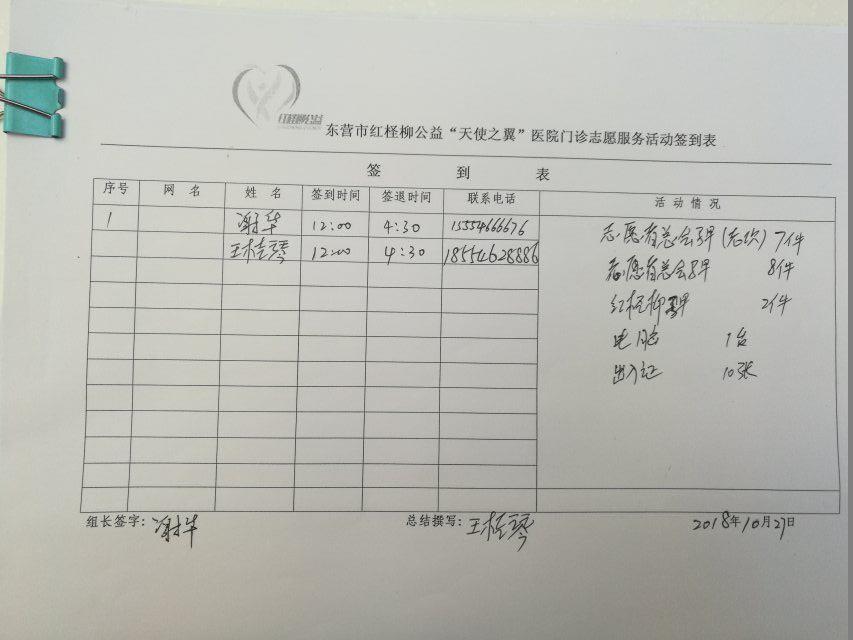 红柽柳公益
东营市红柽柳公益“天使之翼”医院门诊志愿服务活动签到表
签 到 表
序号 网 名 姓 名 签到时间 签退时间 联系电话 活 动 情 况
1 谢华 12:00 4:30 15554666676
王桂琴 12:00 4:30 18554628886
志愿者总会 7件
志愿者总会 8件
红柽柳 2件
电脑 1台
出入证 10张
组长签字:谢华 总结撰写:王桂琴 2018年10月27日